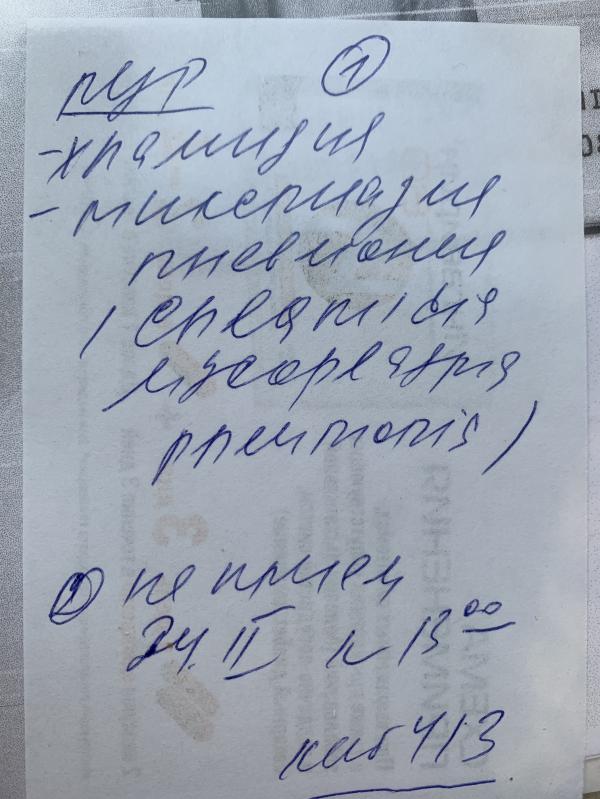 ПЦР ①
- хламидия
- микоплазма
пневмония
(Chlamidia
mycoplazma
pneumonia)
② на прием
24. II к 13⁰⁰
каб 413